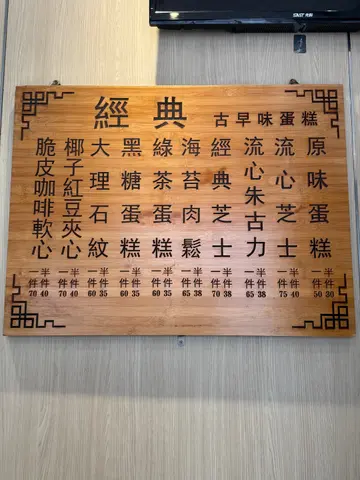 經典 古早味蛋糕
原味蛋糕
一件 50 半件 30
流心芝士
一件 75 半件 40
流心朱古力
一件 65 半件 38
經典芝士
一件 70 半件 38
海苔肉鬆
一件 65 半件 38
綠茶蛋糕
一件 60 半件 35
黑糖蛋糕
一件 60 半件 35
大理石紋
一件 60 半件 35
椰子紅豆夾心
一件 70 半件 40
脆皮咖啡軟心
一件 70 半件 40